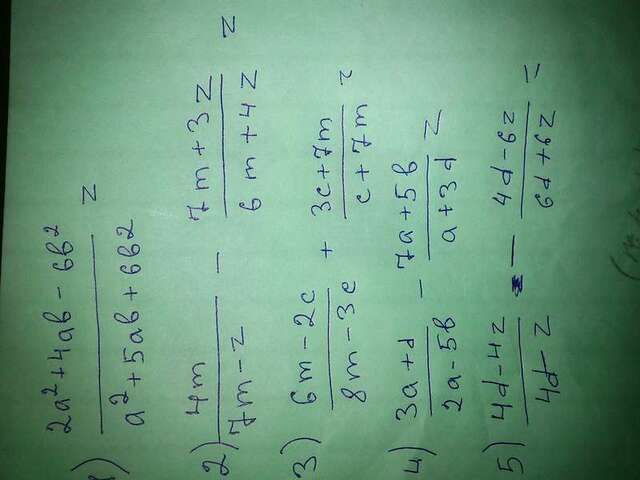 1) (2a²+4ab-6b²)/(a²+5ab+6b2) =
2) 4m/(7m-z) - (7m+3z)/(6m+4z) =
3) (6m-2c)/(8m-3c) + (3c+7m)/(c+7m) =
4) (3a+d)/(2a-5b) - (7a+5b)/(a+3d) =
5) (4d-4z)/(4d-z) - (4d-6z)/(6d+6z) =